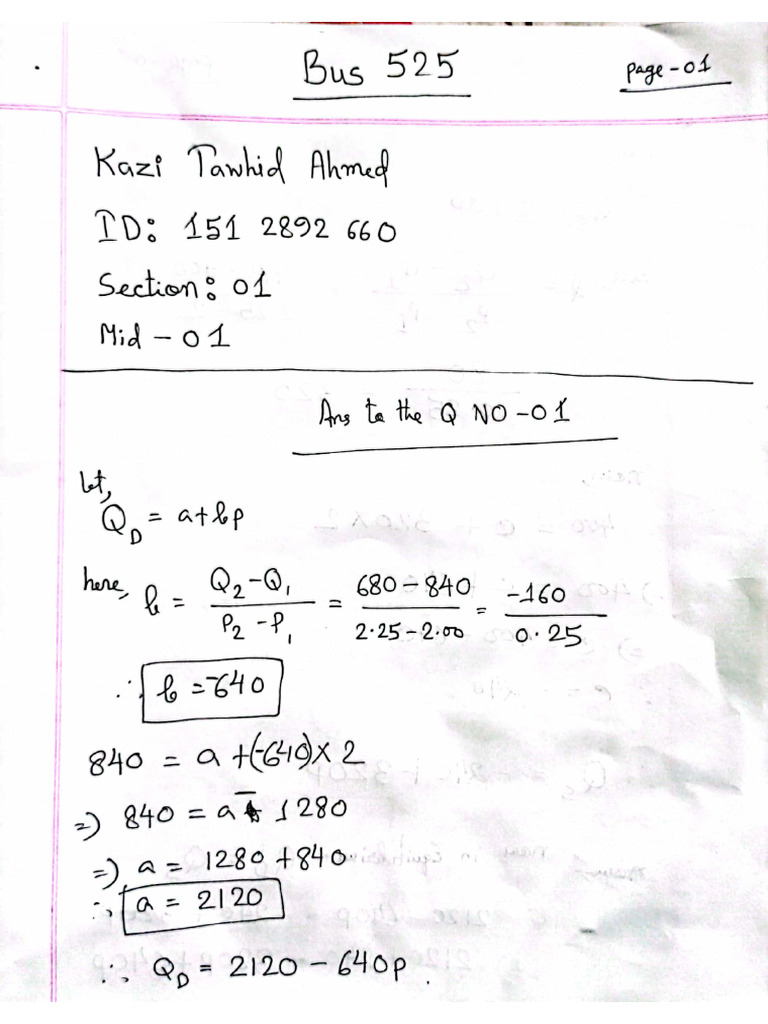 Bus 525
page-01
Kazi Tawhid Ahmed
ID: 151 2892 660
Section: 01
Mid - 01
Ans to the Q NO-01
let,
Q_D = a+bp
here, b = (Q₂-Q₁)/(P₂-P₁) = (680-840)/(2.25-2.00) = -160/0.25
∴ b = -640
840 = a +(-640)×2
=) 840 = a - 1280
=) a = 1280 + 840
∴ a = 2120
∴ Q_D = 2120 - 640p.